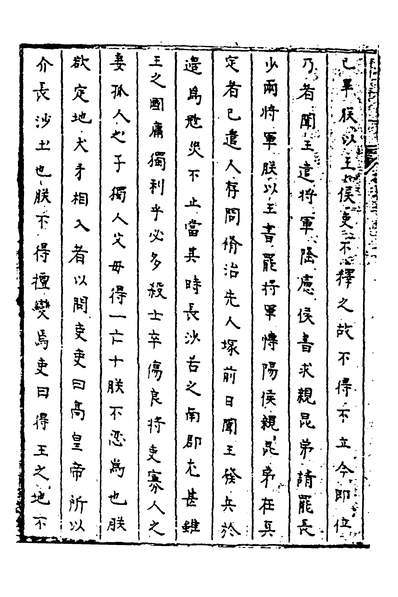 已畢朕以王侯吏不釋之故不得不立今即位
乃者聞王遺將軍隆慮侯書求親昆弟請罷長
沙兩將軍朕以王書罷將軍愽陽侯親昆弟在真
定者已遣人存問脩治先人塚前日聞王發兵於
邉為㓂災不止當其時長沙苦之南郡尤甚雖
王之國庸獨利乎必多殺士卒傷良將吏寡人之
妻孤人之子獨人父母得一亡十朕不忍為也朕
欲定地犬牙相入者以問吏吏曰高皇帝所以
介長沙土也朕不得擅變焉吏曰得王之地不